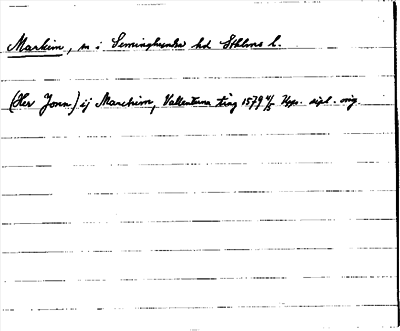 Markim, sn i Seminghundra hd Sthlms l.
(Her Jonn) ij Marchim, Vallentuna ting 1579 4/5 Upps. dipl. orig.